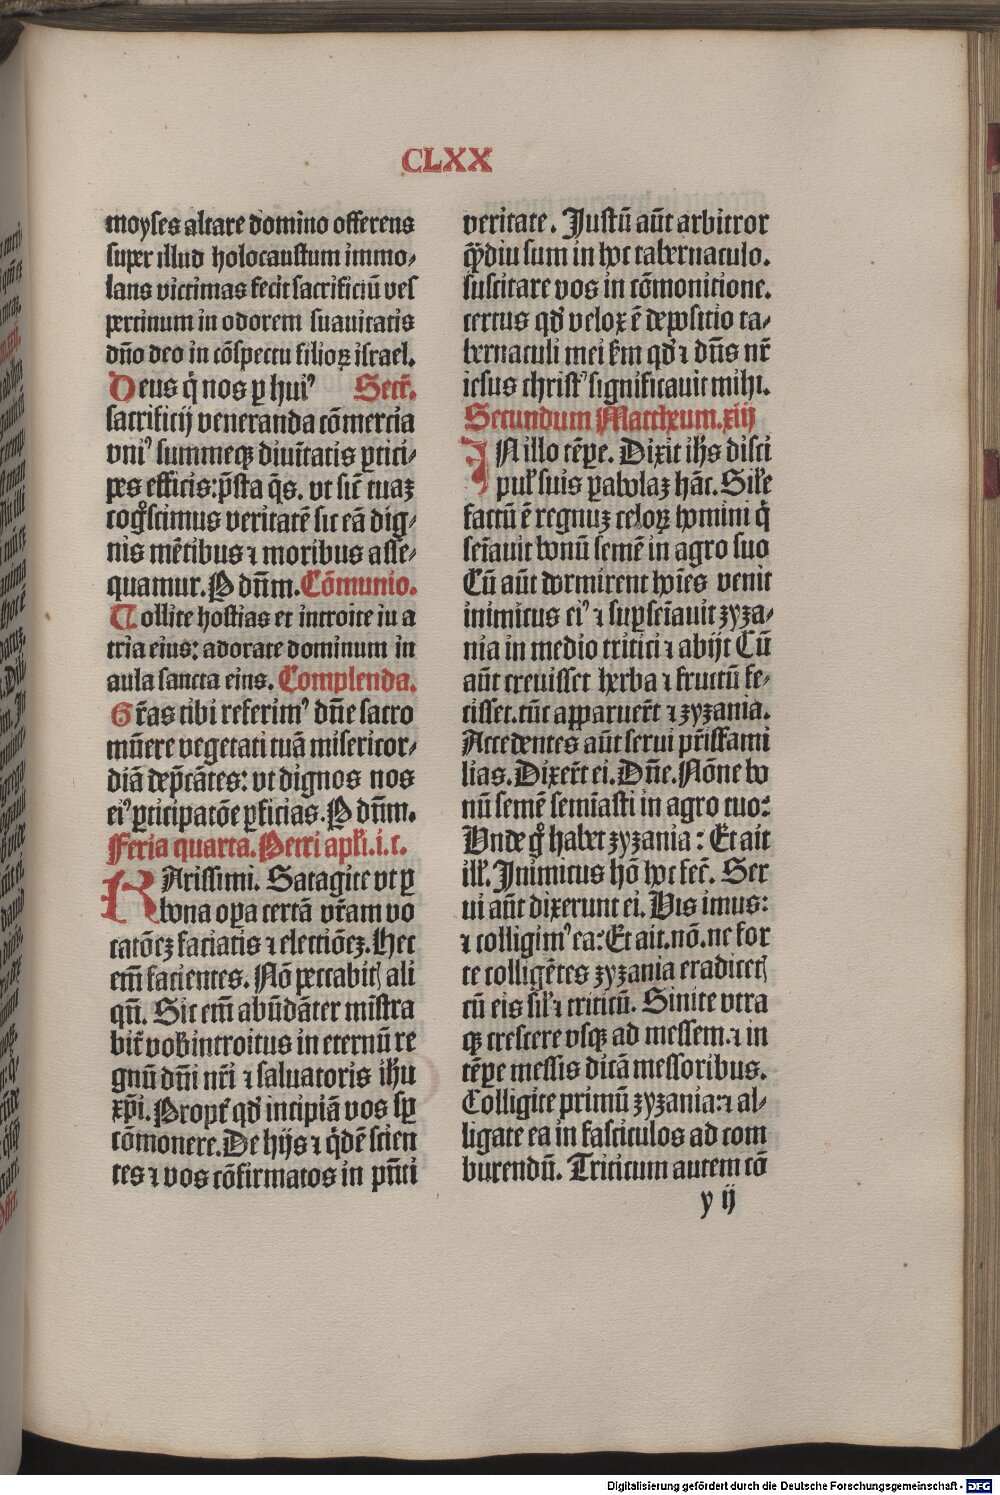 CLXX
moyses altare domino offerens
super illud holocaustum immo⸗
lans victimas fecit sacrificiū ves
pertinum in odorem suauitatis
dn̄o deo in cōspectu filioꝝ israel.
Deus q̄ nos ꝑ huiꝰ Secr̄.
sacrificij veneranda cōmercia
vniꝰ summeqꝫ diuītatis ꝑtici⸗
pes efficis: p̄sta q̄s. vt sic̄ tuaꝫ
cogͦscimus veritatē sic eā dig⸗
nis mētibus ⁊ moribus asse⸗
quamur. P dn̄m. Cōmunio.
Tollite hostias et introite in a
tria eius: adorate dominum in
aula sancta eius. Complenda.
Gr̄as tibi referimꝰ dn̄e sacro
mūere vegetati tuā misericor⸗
diā dep̄cātes: vt dignos nos
eiꝰ ꝑticipatōe ꝑficias. P dn̄m.
Feria quarta. Petri apl̓i. i. c.
KArissimi. Satagite vt ꝑ
bona oꝑa certā vr̄am vo
catōeꝫ faciatis ⁊ electiōeꝫ. Hec
em̄ facientes. Nō peccabit᷒ ali
qn̄. Sic em̄ abūdāter mīstra
bit᷒ vob̓ introitus in eternū re
gnū dn̄i nr̄i ⁊ saluatoris ih̓u
xp̄i. Propt̓ qd̓ incipiā vos sꝑ
cōmonere. De hijs ⁊ q̇dē scien
tes ⁊ vos cōfirmatos in pn̄ti
veritate. Justū aūt arbitror
qͣ̄diu sum in hoc tabernaculo.
suscitare vos in cōmonitione.
certus qd̓ velox ē depositio ta⸗
bernaculi mei s̓m qd̓ ⁊ dn̄s nr̄
iesus christꝰ significauit mihi.
Secundum Mattheum. xiij
IN illo tēpe. Dixit ih̓s disci
pul̓ suis ꝑabolaꝫ hāc. Sil̓e
factū ē regnuꝫ celoꝝ homini q̄
seīauit bonū semē in agro suo
Cū aūt dormirent hoīes venit
inimicus eiꝰ ⁊ supseīauit zyza⸗
nia in medio tritici ⁊ abijt Cū
aūt creuisset herba ⁊ fructū fe⸗
cisset. tūc apparuer̄t ⁊ zyzania.
Accedentes aūt serui pr̄isfami
lias. Dixer̄t ei. Dn̄e. Nōne bo
nū semē semīasti in agro tuo:
Vnde gͦ habet zyzania: Et ait
ill̓. Inimicus hō hoc fec̄. Ser
ui aūt dixerunt ei. Vis imus:
⁊ colligimꝰ ea: Et ait. nō. ne for
te colligētes zyzania eradicet᷒
cū eis sil̓ ⁊ triticū. Sinite vtra
qꝫ crescere vsqꝫ ad messem. ⁊ in
tēpe messis dicā messoribus.
Colligite primū zyzania: ⁊ al⸗
ligate ea in fasciculos ad com
burendū. Triticum autem cō
y ij
Digitalisierung gefördert durch die Deutsche Forschungsgemeinschaft - DFG